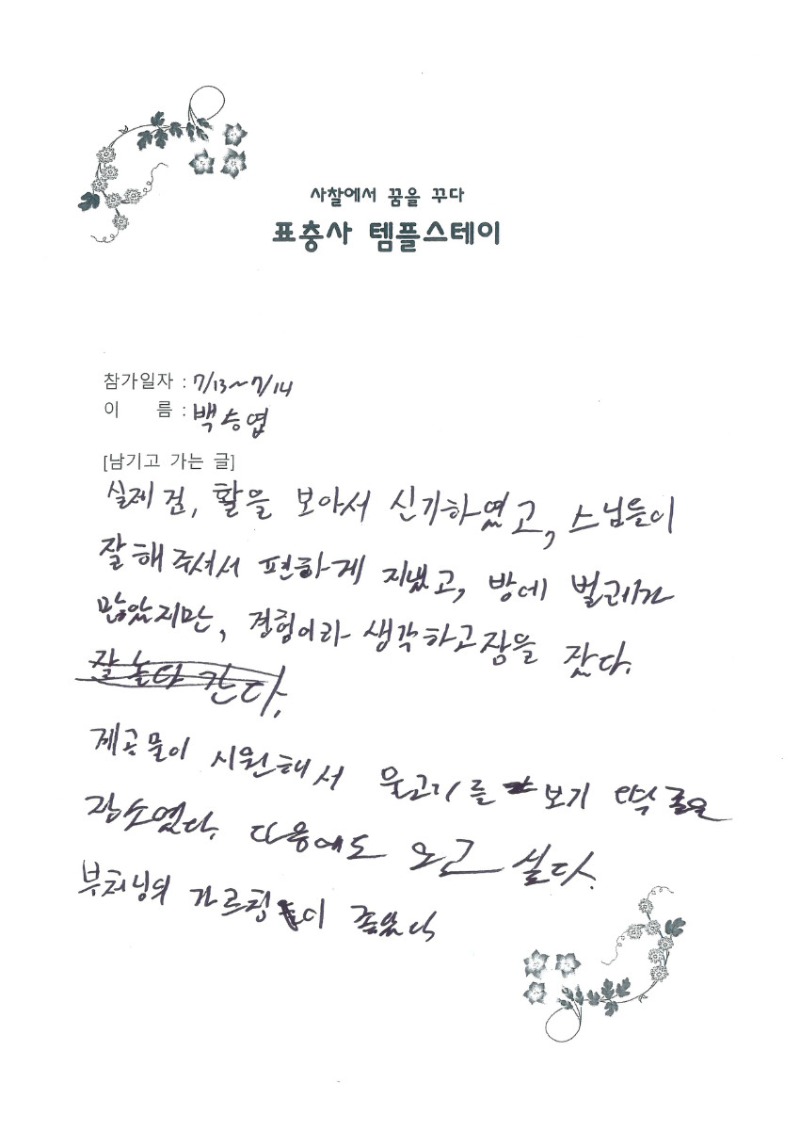 사찰에서 꿈을 꾸다
표충사 템플스테이
참가일자 : 7/13~7/14
이 름 : 백승엽
[남기고 가는 글]
실제 검, 활을 보아서 신기하였고, 스님들이
잘해주셔서 편하게 지냈고, 방에 벌레가
많았지만, 경험이라 생각하고 잠을 잤다.
잘 놀다 간다.
계곡물이 시원해서 물고기를 보기 딱 좋은
장소였다. 다음에도 오고 싶다.
부처님의 가르침이 좋았다